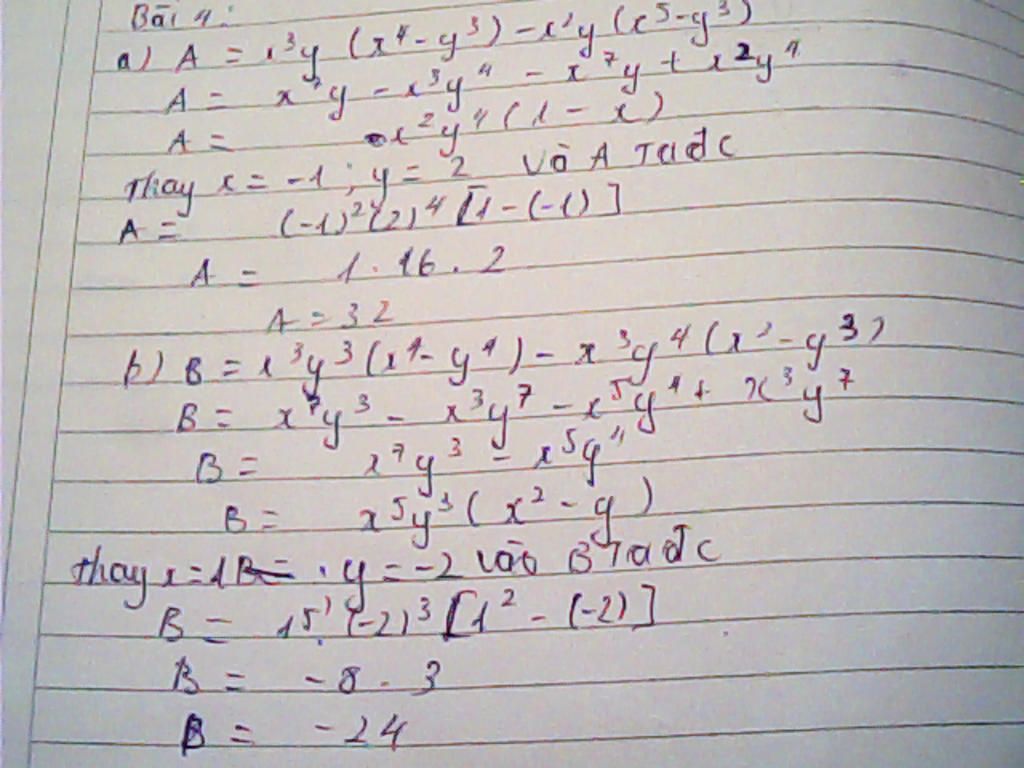 Bài 4:
a) A = x³y (x⁴ - y³) - x²y (x⁵ - y³)
A = x⁷y - x³y⁴ - x⁷y + x²y⁴
A = x²y⁴ (1 - x)
Thay x = -1 ; y = 2 Vò A Ta đc
A = (-1)²(2)⁴ [1 - (-1)]
A = 1 . 16 . 2
A = 32
b) B = x³y³ (x⁴ - y⁴) - x³y⁴ (x² - y³)
B = x⁷y³ - x³y⁷ - x⁵y⁴ + x³y⁷
B = x⁷y³ - x⁵y⁴
B = x⁵y³ ( x² - y )
thay x = 1 . y = -2 vào B Ta đc
B = 1⁵ . (-2)³ [1² - (-2)]
B = -8 . 3
B = -24